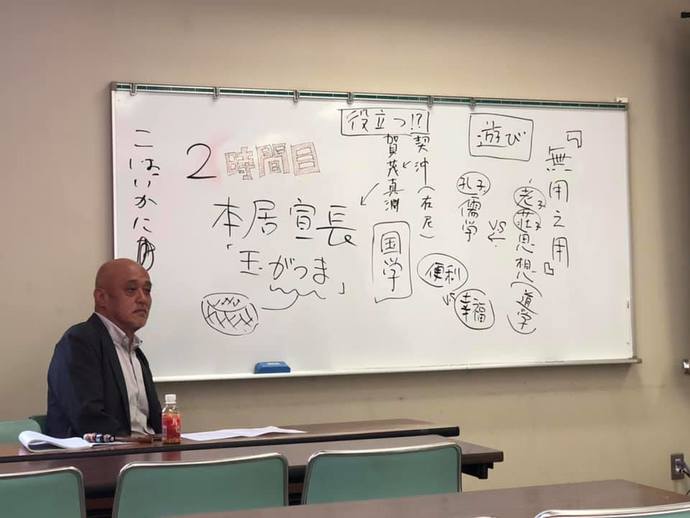 『無用之用』
老子荘子思想(道学)
VS
孔子
儒学
遊び
便利
VS
幸福
役立つ!?
契沖(在尼)
賀茂真淵
国学
2時間目
本居宣長
「玉がつま」
こはいかに